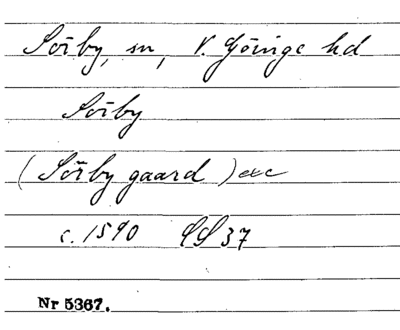 Sörby, sn, V. Göinge hd
Sörby
(Sörby gaard) exc
c. 1590 SS 37
Nr 5367.